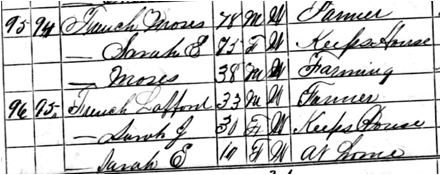 95 94 French Moses 78 M W Farmer
— Sarah E 75 F W Keeps House
— Moses 38 M W Farming
96 95 French Lafford 33 M W Farmer
— Sarah J 30 F W Keeps House
— Sarah E 10 F W At home